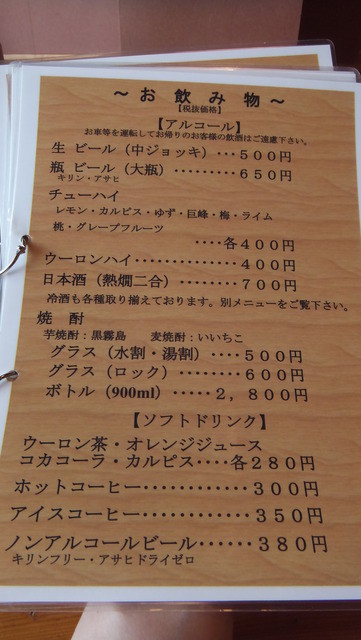 ～お飲み物～
【税抜価格】
【アルコール】
お車等を運転してお帰りのお客様の飲酒はご遠慮下さい。
生 ビール（中ジョッキ）・・・５００円
瓶 ビール（大瓶）・・・・・・・・・６５０円
キリン・アサヒ
チューハイ
レモン・カルピス・ゆず・巨峰・梅・ライム
桃・グレープフルーツ
・・・・各４００円
ウーロンハイ・・・・・・・・・・・・・４００円
日本酒（熱燗二合）・・・・・・・・・７００円
冷酒も各種取り揃えております。別メニューをご覧下さい。
焼　酎
芋焼酎：黒霧島　　麦焼酎：いいちこ
グラス（水割・湯割）・・・・５００円
グラス（ロック）・・・・・・・・６００円
ボトル（900ml）・・・・・２，８００円
【ソフトドリンク】
ウーロン茶・オレンジジュース
コカコーラ・カルピス・・・・各２８０円
ホットコーヒー・・・・・・・・・・・３００円
アイスコーヒー・・・・・・・・・・・３５０円
ノンアルコールビール・・・・・・３８０円
キリンフリー・アサヒドライゼロ